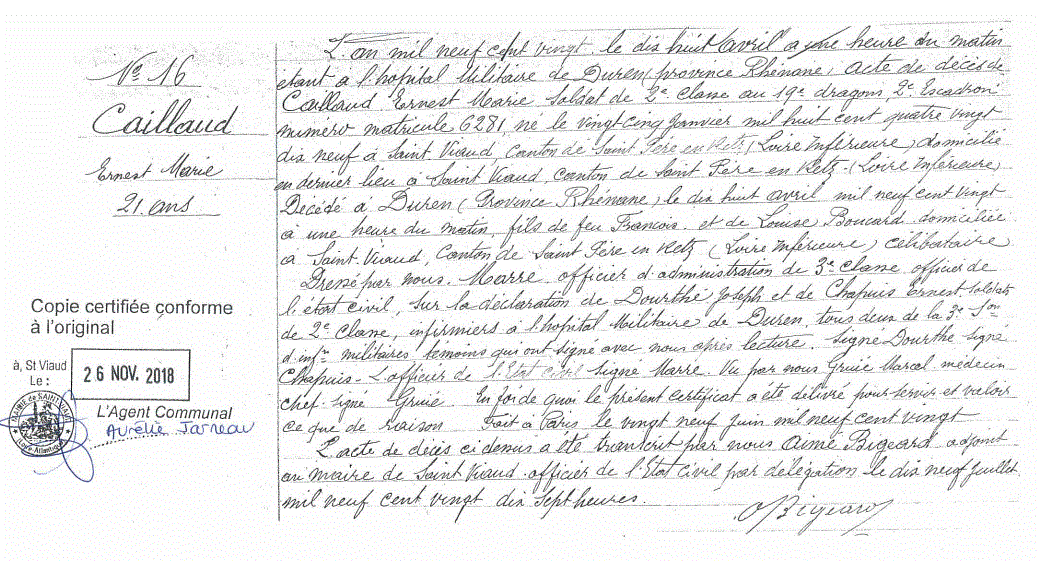 N° 16
Caillaud
Ernest Marie
21 ans
Copie certifiée conforme
à l'original
à, St Viaud
Le :
26 NOV. 2018
L'Agent Communal
Aurélie Jarneau
MAIRIE de SAINT-VIAUD
Loire-Atlantique
L'an mil neuf cent vingt le dix huit avril à une heure du matin
étant à l'hopital Militaire de Duren (province Rhénane) Acte de décès de
Caillaud Ernest Marie Soldat de 2e Classe au 19e dragons, 2e Escadron
numéro matricule 6281, né le vingt cinq Janvier mil huit cent quatre vingt
dix neuf à Saint Viaud, Canton de Saint Père en Retz (Loire Inférieure) domicilié
en dernier lieu à Saint Viaud, canton de Saint Père en Retz (Loire Inférieure)
Décédé à Duren (Province Rhénane) le dix huit avril mil neuf cent vingt
à une heure du matin, fils de feu François et de Louise Boucard domiciliée
à Saint Viaud, Canton de Saint Père en Retz (Loire Inférieure) célibataire
Dressé par nous Marre officier d'administration de 3e Classe officier de
l'état civil, sur la déclaration de Dourthé Joseph et de Chapuis Ernest Soldats
de 2e Classe, infirmiers à l'hopital Militaire de Duren, tous deux de la 3e Son
d'infrs militaires témoins qui ont signé avec nous après lecture. Signé Dourthé Signé
Chapuis - L'officier de l'Etat civil signé Marre. Vu par nous Gruie Marcal médecin
chef signé Gruie En foi de quoi le présent certificat a été délivré pour servir et valoir
ce que de raison Fait à Paris le vingt neuf Juin mil neuf cent vingt
L'acte de décès ci dessus a été transcrit par nous Aimé Bigeard adjoint
au maire de Saint Viaud officier de l'Etat Civil par délégation le dix neuf Juillet
mil neuf cent vingt dix Sept heures.
Bigeard